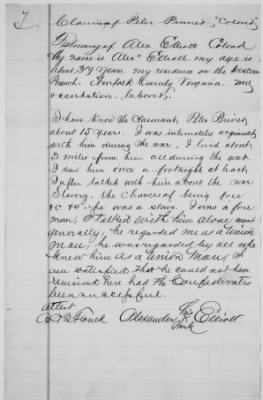 7
Claim of Peter "Colord"
Testimony of Alex Elliott Colord
My name is Alex Elliott. my age is
about 37 years. my residence on the Western
Branch. Norfolk County Virginia my
occupation. laborer,
I have know the Claimant, Peter
about 15 years. I was intimately acquainted
with him during the war. I lived about
3 miles from him all during the war
I saw him once a fortnight at least,
I often talked with him about the war
Slavery. the Chances of being free
&c &c. he was a slave. I was a free
man, I talked with him alone most
generally, he regarded me as a Union
man, he was regarded by all who
knew him as a Union man, I
am satisfied that he could not have
remained here had the Confederates
been successful.
Attest
Alexander his Elliott
mark